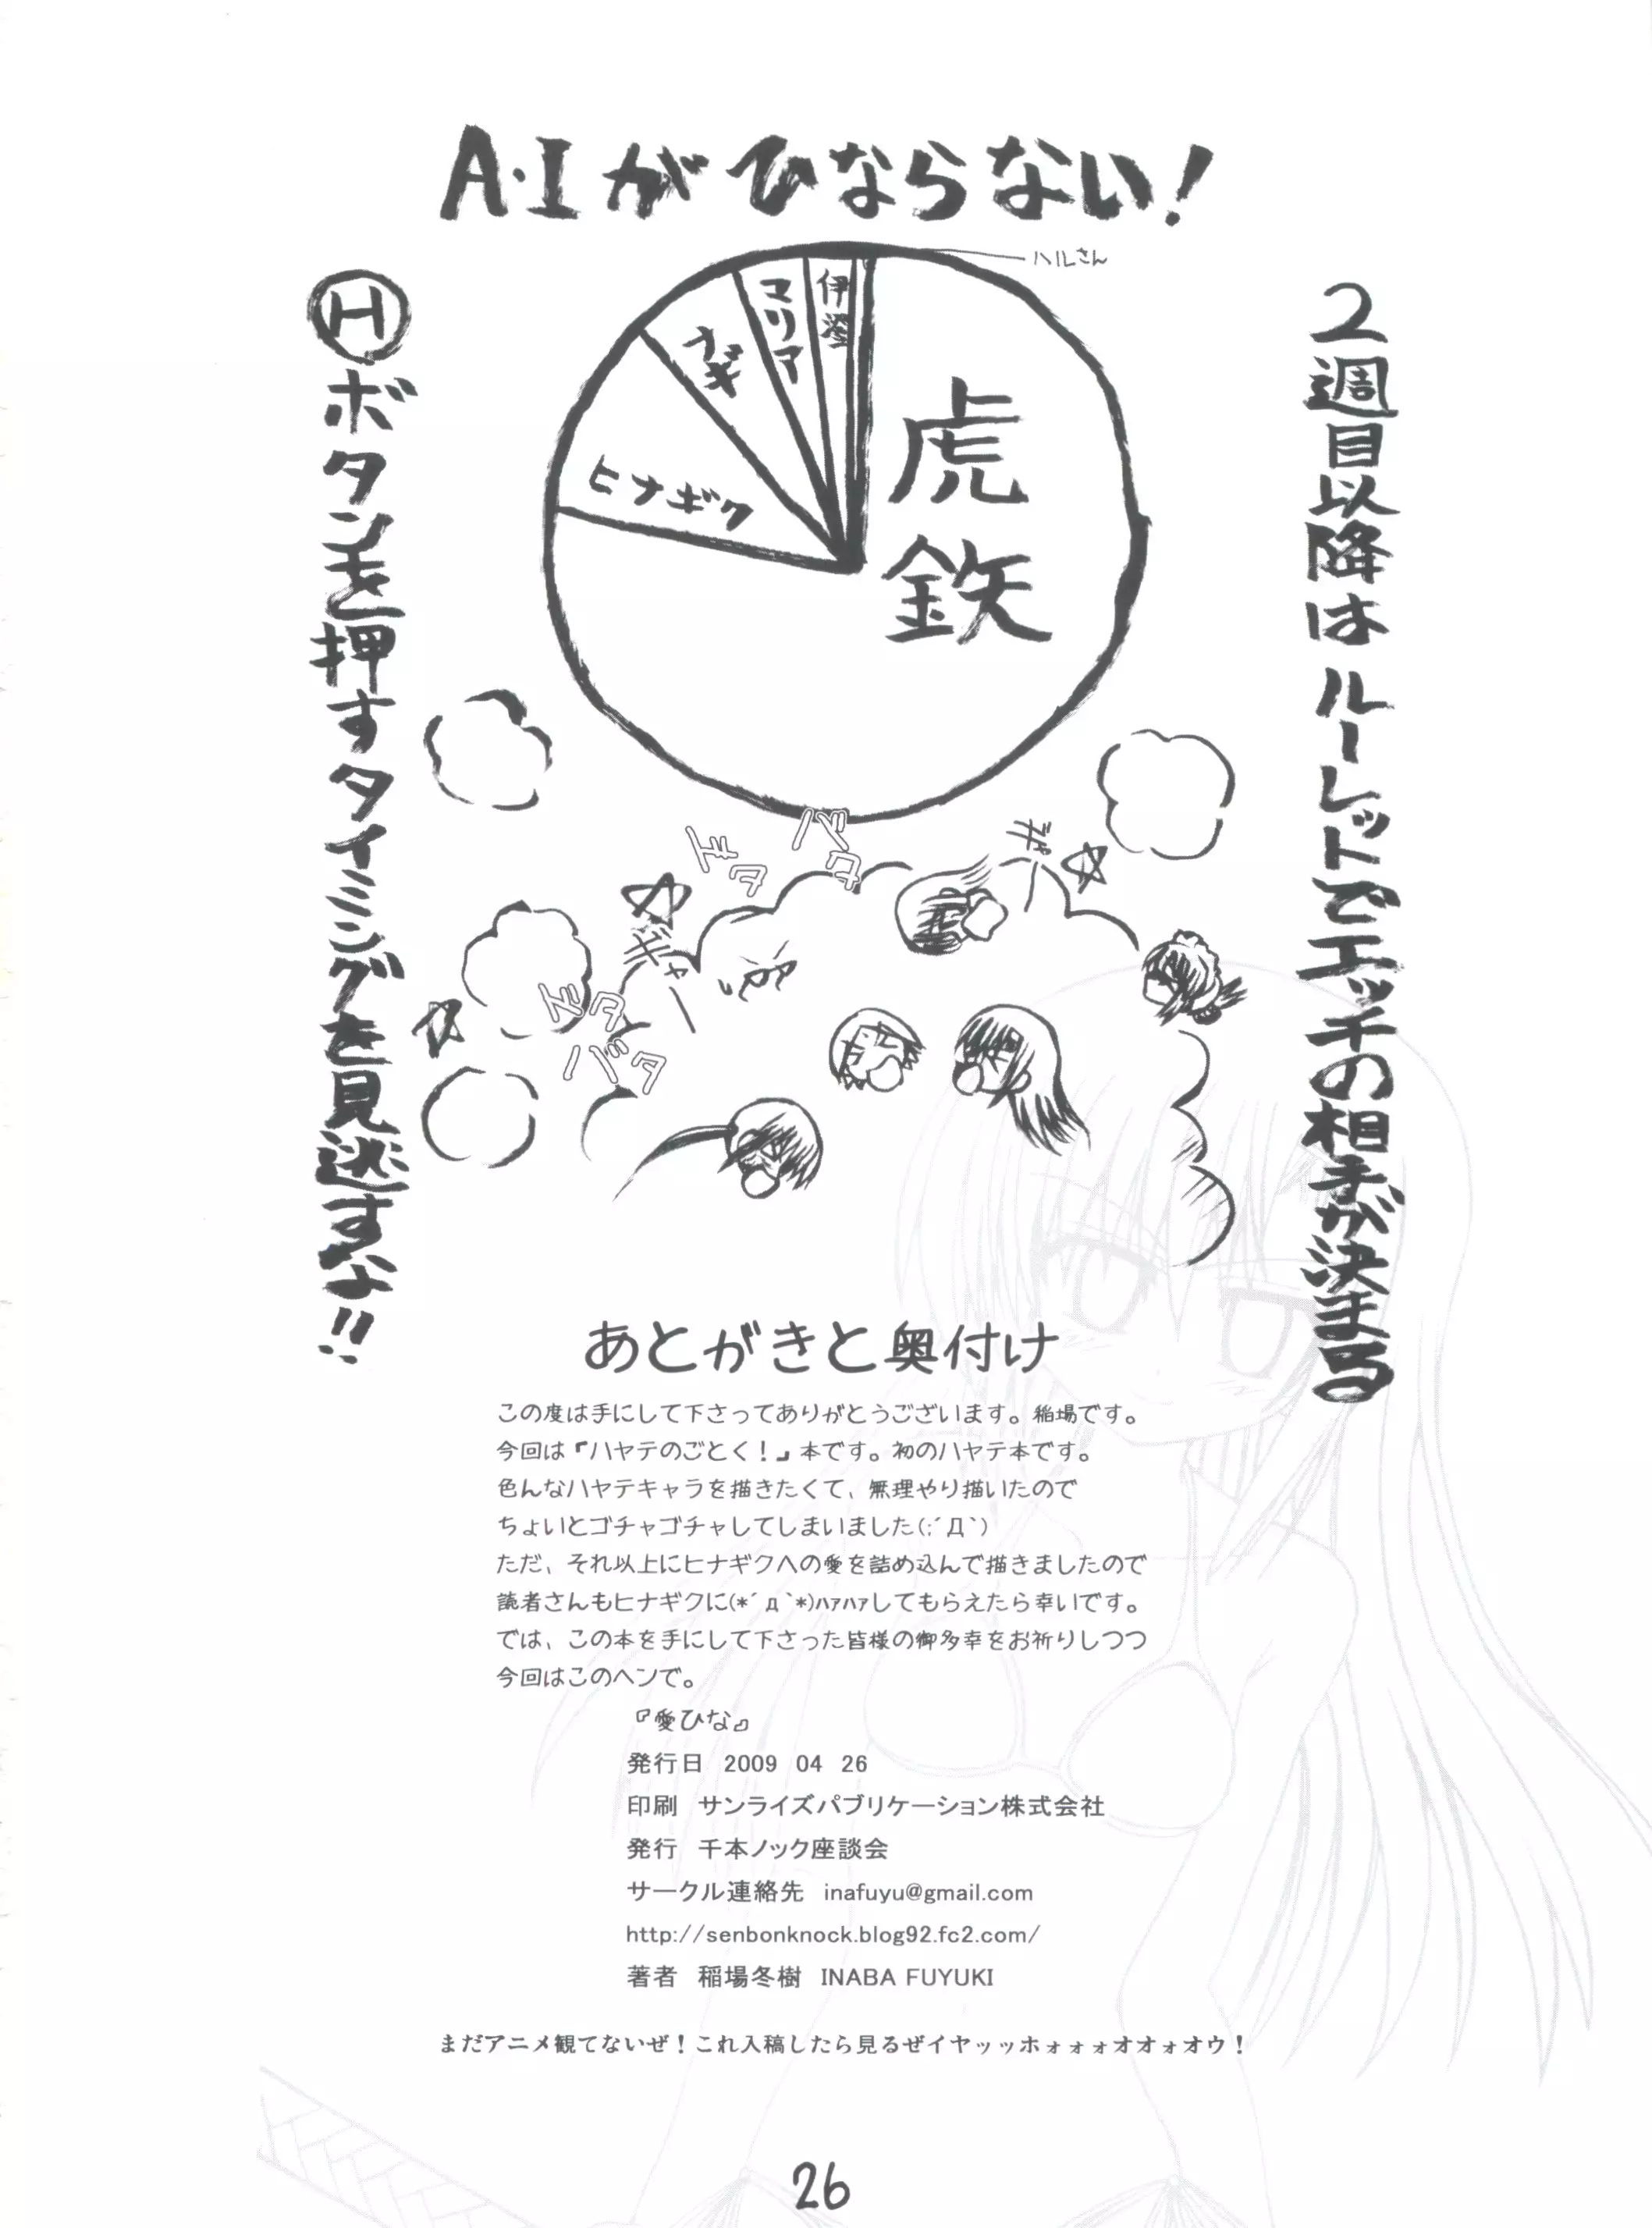 A・Iがひならない!
2週目以降はルーレットでエッチの相手が決まる
Ⓗボタンを押すタイミングを見逃すなよ!!
ハルさん
伊澄
マリア
ナギ
ヒナギク
虎鉄
ギャー
ギャー
ズタ
バタ
あとがきと奥付け
この度は手にして下さってありがとうございます。稲場です。
今回は『ハヤテのごとく!』本です。初のハヤテ本です。
色んなハヤテキャラを描きたくて、無理やり描いたので
ちょいとゴチャゴチャしてしまいました(;´Д`)
ただ、それ以上にヒナギクへの愛を詰め込んで描きましたので
読者さんもヒナギクに(*´д`*)ハァハァしてもらえたら幸いです。
では、この本を手にして下さった皆様の御多幸をお祈りしつつ
今回はこのヘンで。
『愛ひな』
発行日 2009 04 26
印刷 サンライズパブリケーション株式会社
発行 千本ノック座談会
サークル連絡先 inafuyu@gmail.com
http://senbonknock.blog92.fc2.com/
著者 稲場冬樹 INABA FUYUKI
まだアニメ観てないぜ!これ入稿したら見るぜイヤッッホォォォオオォオウ!
26